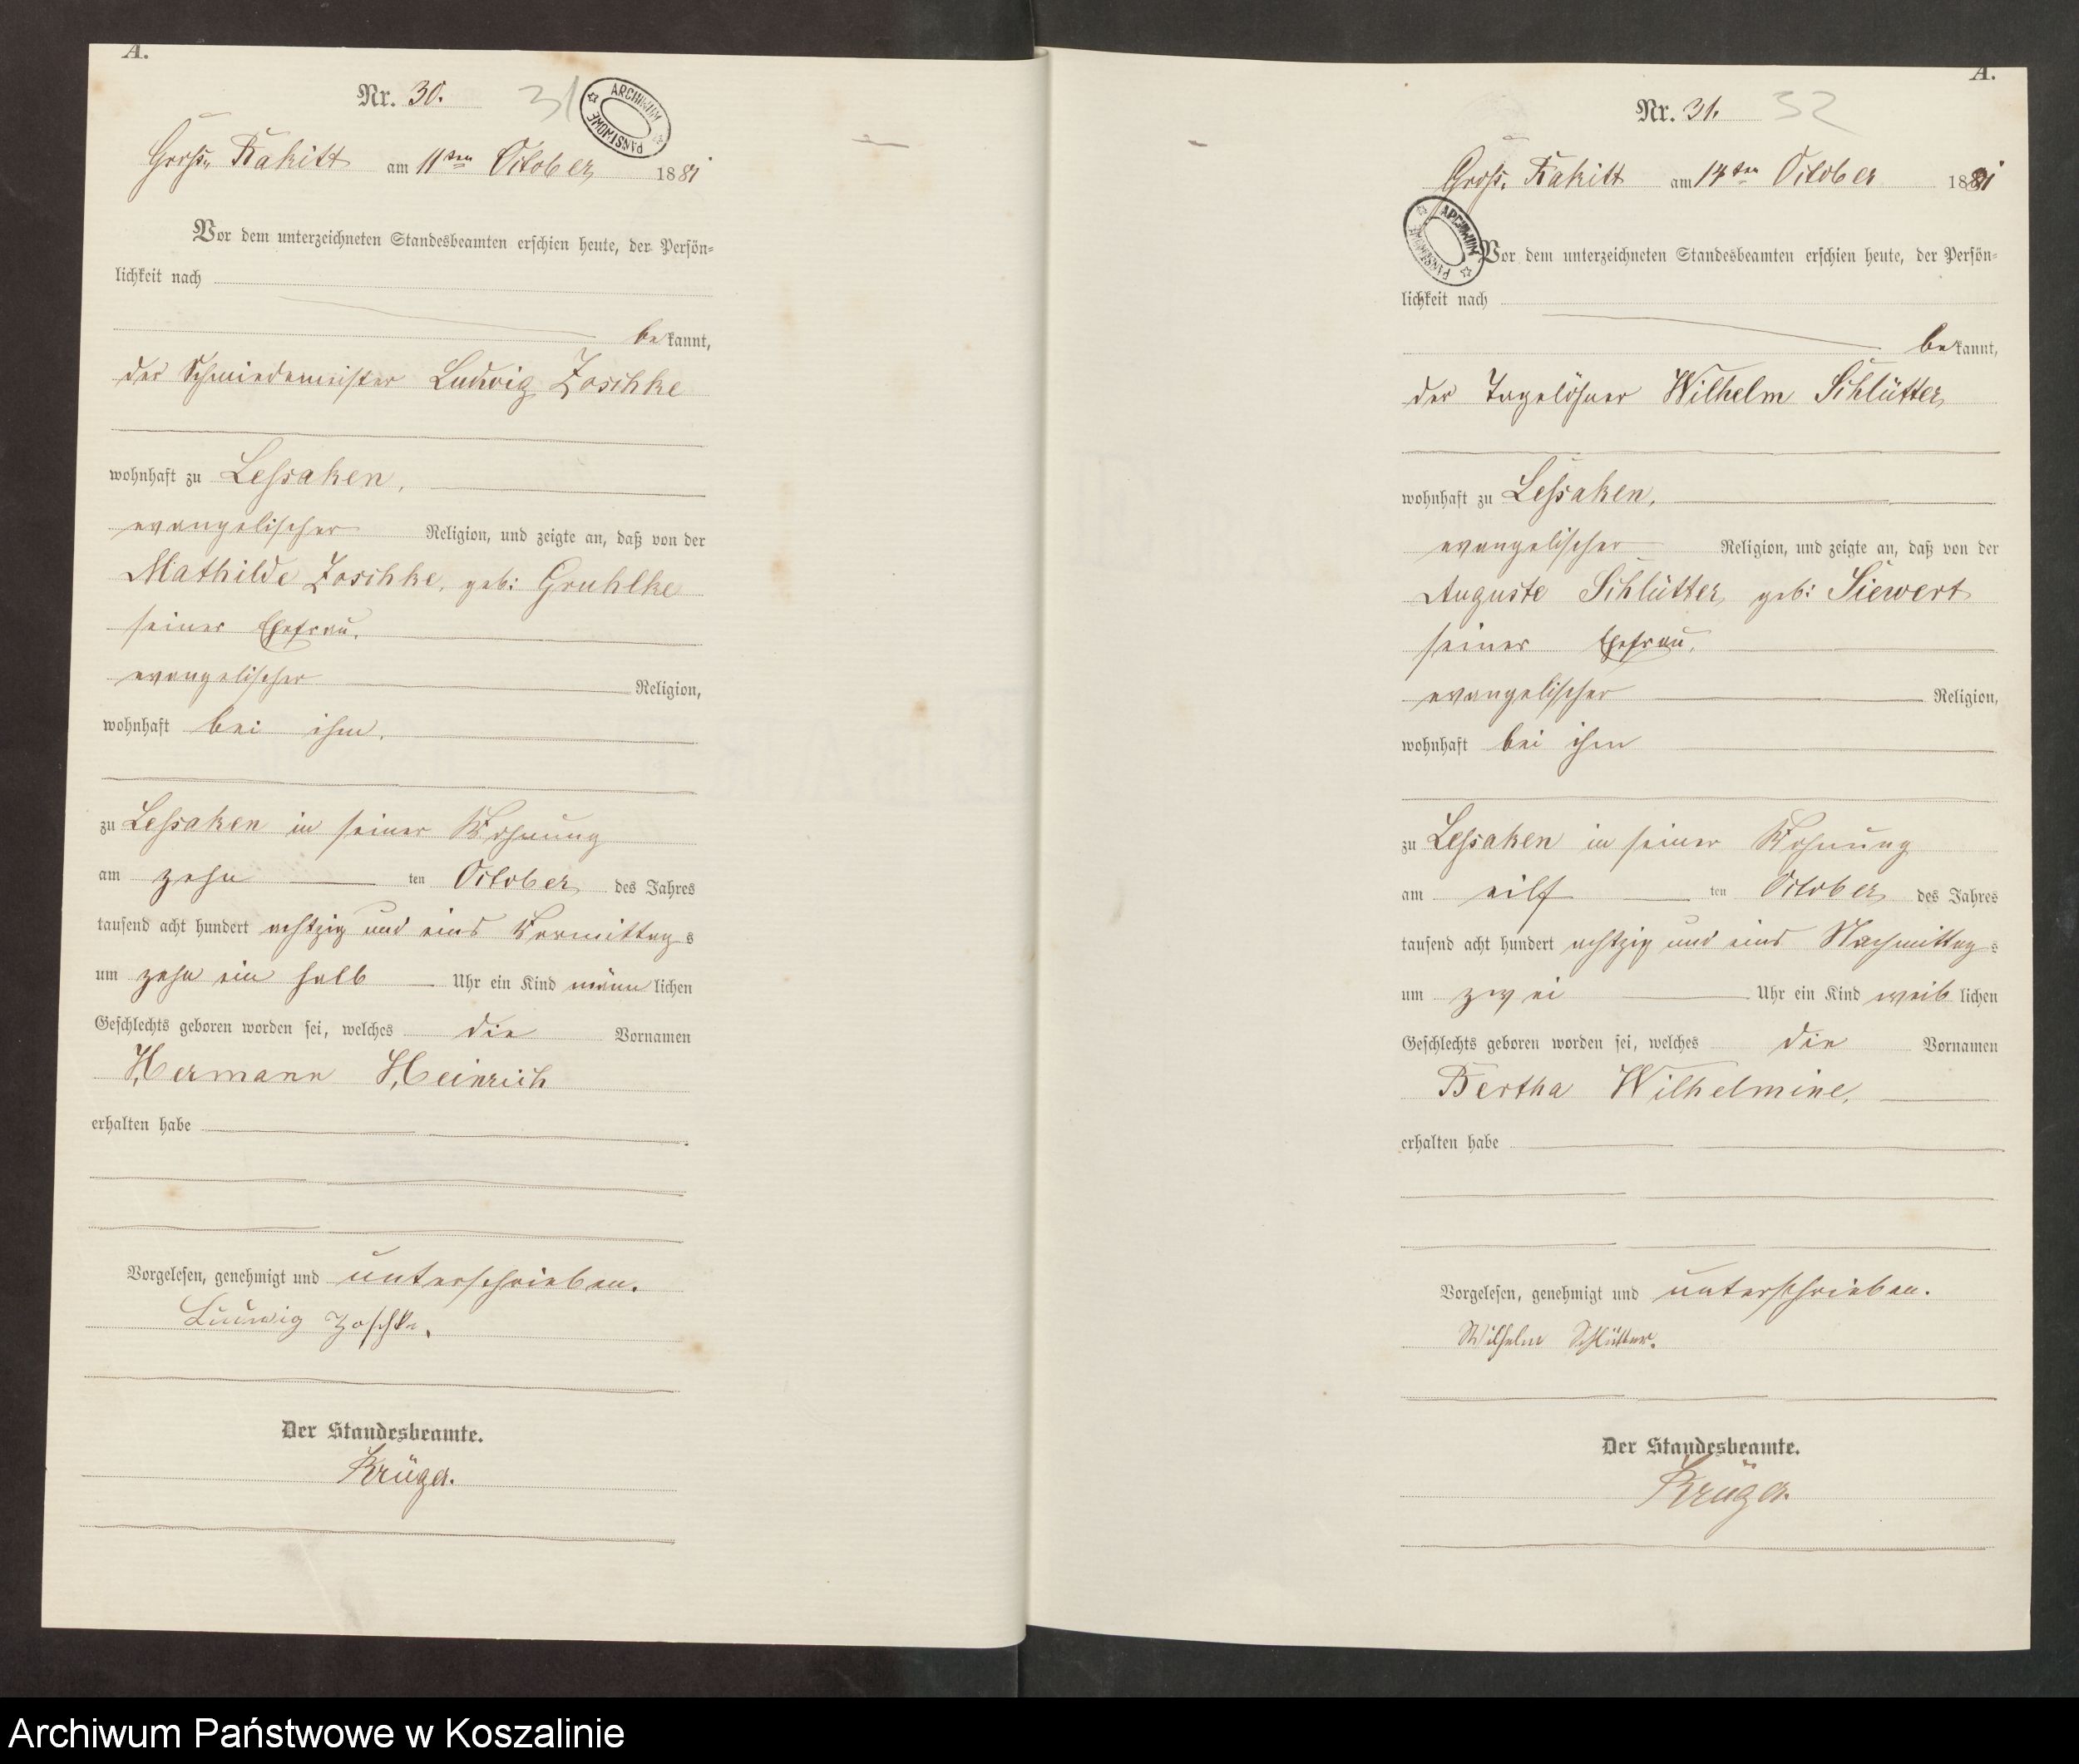 A.
Nr. 30.
31
ARCHIWUM PAŃSTWOWE
Gross Rakitt am 11ten October 1881
Vor dem unterzeichneten Standesbeamten erschien heute, der Persön-
lichkeit nach
bekannt,
der Schmiedemeister Ludwig Zoschke
wohnhaft zu Lessaken,
evangelischer Religion, und zeigte an, daß von der
Mathilde Zoschke, geb: Gruhlke
seiner Ehefrau,
evangelischer Religion,
wohnhaft bei ihm,
zu Lessaken in seiner Wohnung
am zehn ten October des Jahres
tausend acht hundert achtzig und eins Vormittags
um zehn ein halb Uhr ein Kind männlichen
Geschlechts geboren worden sei, welches die Vornamen
Hermann Heinrich
erhalten habe
Vorgelesen, genehmigt und unterschrieben.
Ludwig Zoschke.
Der Standesbeamte.
Krüger.
A.
Nr. 31.
32
ARCHIWUM PAŃSTWOWE
Gross Rakitt am 14ten October 1881
Vor dem unterzeichneten Standesbeamten erschien heute, der Persön-
lichkeit nach
bekannt,
der Tagelöhner Wilhelm Schlütter
wohnhaft zu Lessaken,
evangelischer Religion, und zeigte an, daß von der
Auguste Schlütter geb: Siewert
seiner Ehefrau,
evangelischer Religion,
wohnhaft bei ihm
zu Lessaken in seiner Wohnung
am eilf ten October des Jahres
tausend acht hundert achtzig und eins Nachmittags
um zwei Uhr ein Kind weiblichen
Geschlechts geboren worden sei, welches die Vornamen
Bertha Wilhelmine,
erhalten habe
Vorgelesen, genehmigt und unterschrieben.
Wilhelm Schlütter.
Der Standesbeamte.
Krüger.
Archiwum Państwowe w Koszalinie